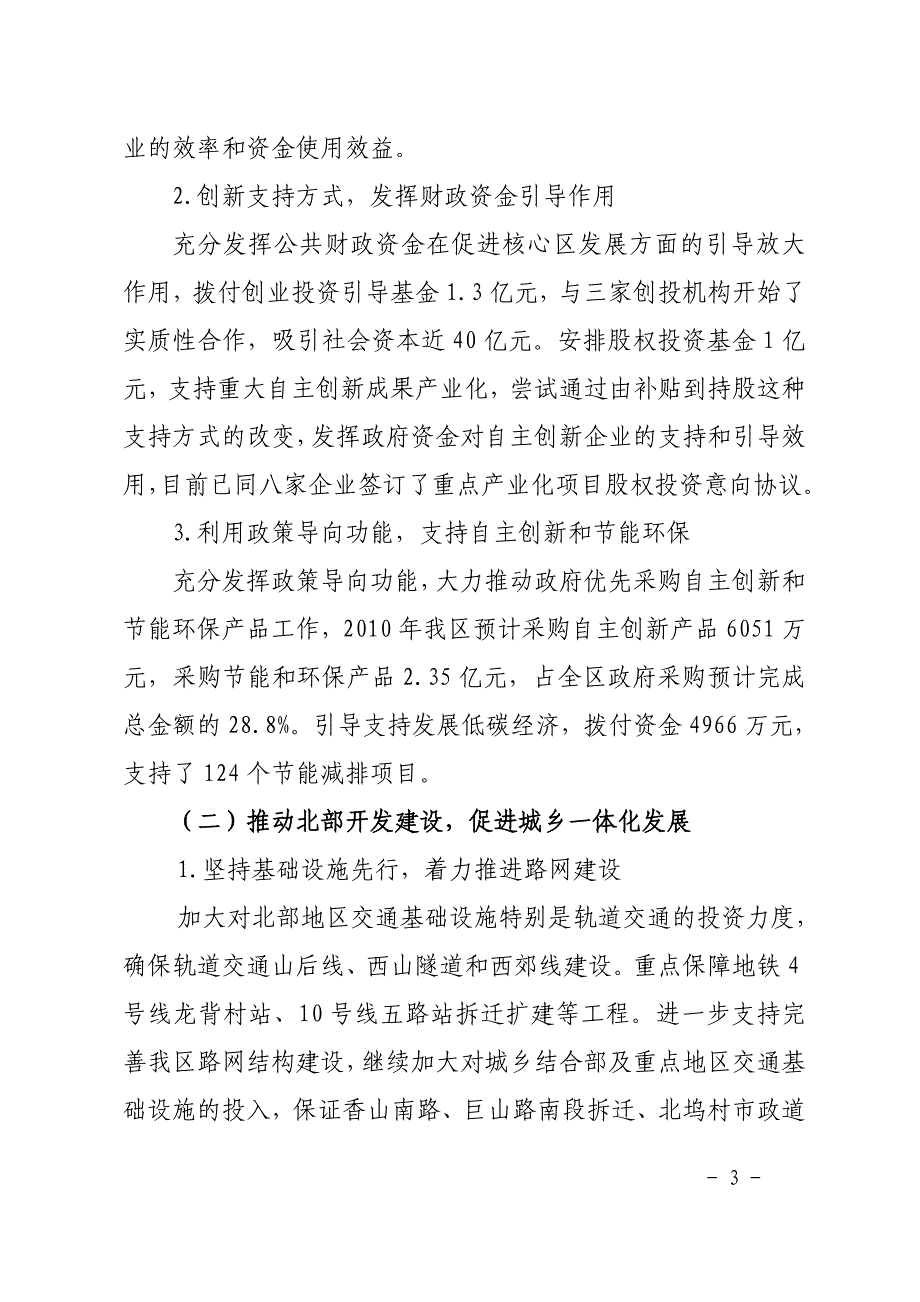 业的效率和资金使用效益。
2.创新支持方式，发挥财政资金引导作用
充分发挥公共财政资金在促进核心区发展方面的引导放大
作用，拨付创业投资引导基金1.3亿元，与三家创投机构开始了
实质性合作，吸引社会资本近40亿元。安排股权投资基金1亿
元，支持重大自主创新成果产业化，尝试通过由补贴到持股这种
支持方式的改变，发挥政府资金对自主创新企业的支持和引导效
用，目前已同八家企业签订了重点产业化项目股权投资意向协议。
3.利用政策导向功能，支持自主创新和节能环保
充分发挥政策导向功能，大力推动政府优先采购自主创新和
节能环保产品工作，2010年我区预计采购自主创新产品6051万
元，采购节能和环保产品2.35亿元，占全区政府采购预计完成
总金额的28.8%。引导支持发展低碳经济，拨付资金4966万元，
支持了124个节能减排项目。
（二）推动北部开发建设，促进城乡一体化发展
1.坚持基础设施先行，着力推进路网建设
加大对北部地区交通基础设施特别是轨道交通的投资力度，
确保轨道交通山后线、西山隧道和西郊线建设。重点保障地铁4
号线龙背村站、10号线五路站拆迁扩建等工程。进一步支持完
善我区路网结构建设，继续加大对城乡结合部及重点地区交通基
础设施的投入，保证香山南路、巨山路南段拆迁、北坞村市政道
－3－